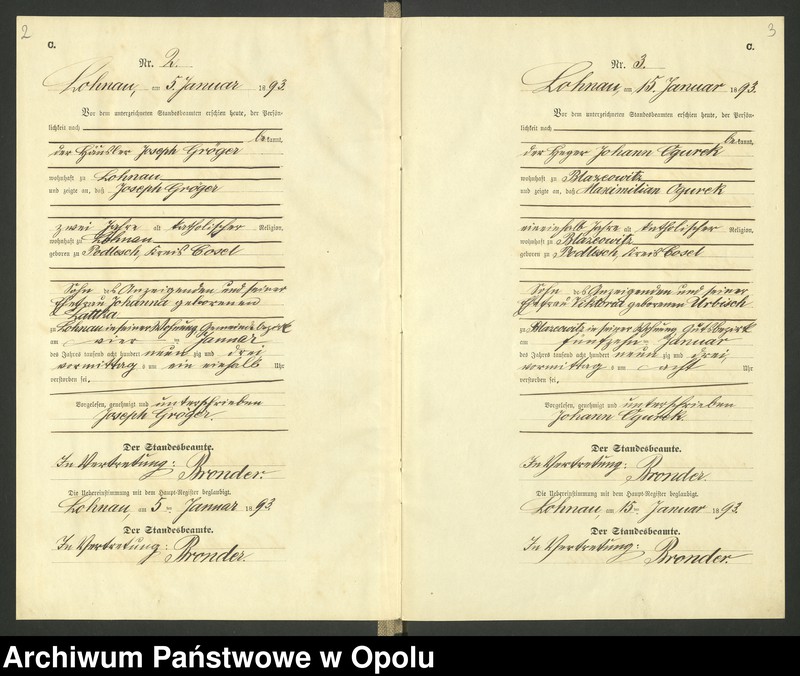 2
C.
Nr. 2.
Lohnau, am 5. Januar 1893.
Vor dem unterzeichneten Standesbeamten erschien heute, der Persön-
lichkeit nach
bekannt,
der Häusler Joseph Gröger
wohnhaft zu Lohnau
und zeigte an, daß Joseph Gröger
zwei Jahre alt katholischer Religion,
wohnhaft zu Lohnau
geboren zu Podlesch, Kreis Cosel
Sohn des Anzeigenden und seiner
Ehefrau Johanna geborenen
Lattka
zu Lohnau in seiner Wohnung Gemeindebezirk
am vier ten Januar
des Jahres tausend acht hundert neun zig und drei
vormittag s um ein einhalb Uhr
verstorben sei.
Vorgelesen, genehmigt und unterschrieben
Joseph Gröger.
Der Standesbeamte.
In Vertretung: Bronder.
Die Uebereinstimmung mit dem Haupt-Register beglaubigt.
Lohnau, am 5 ten Januar 1893
Der Standesbeamte.
In Vertretung: Bronder.
3
C.
Nr. 3.
Lohnau, am 15. Januar 1893.
Vor dem unterzeichneten Standesbeamten erschien heute, der Persön-
lichkeit nach
bekannt,
der Heger Johann Ogurek
wohnhaft zu Blazeowitz
und zeigte an, daß Maximilian Ogurek
eineinhalb Jahre alt katholischer Religion,
wohnhaft zu Blazeowitz
geboren zu Podlesch, Kreis Cosel
Sohn des Anzeigenden und seiner
Ehefrau Viktoria geborenen Urbisch
zu Blazeowitz in seiner Wohnung Gutsbezirk
am fünfzehn ten Januar
des Jahres tausend acht hundert neun zig und drei
vormittag s um acht Uhr
verstorben sei.
Vorgelesen, genehmigt und unterschrieben
Johann Ogurek.
Der Standesbeamte.
In Vertretung: Bronder.
Die Uebereinstimmung mit dem Haupt-Register beglaubigt.
Lohnau, am 15 ten Januar 1893.
Der Standesbeamte.
In Vertretung: Bronder.
Archiwum Państwowe w Opolu